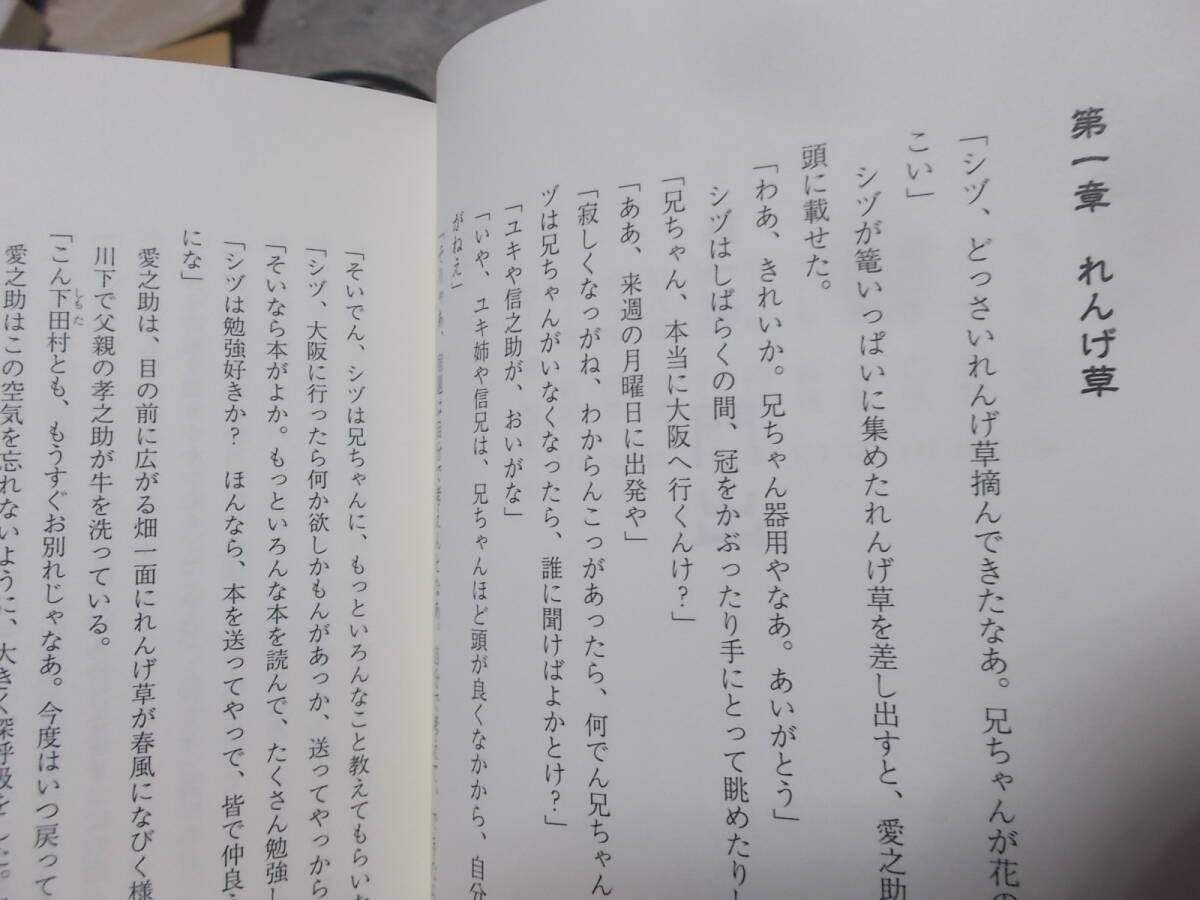 第一章　れんげ草
「シヅ、どっさいれんげ草摘んできたなあ。兄ちゃんが花の
こい」
シヅが篭いっぱいに集めたれんげ草を差し出すと、愛之助
頭に載せた。
「わあ、きれいか。兄ちゃん器用やなあ。あいがとう」
シヅはしばらくの間、冠をかぶったり手にとって眺めたりし
「兄ちゃん、本当に大阪へ行くんけ？」
「ああ、来週の月曜日に出発や」
「寂しくなっがね、わからんこっがあったら、何でん兄ちゃん
ヅは兄ちゃんがいなくなったら、誰に聞けばよかとけ？」
「ユキや信之助が、おいがな」
「いや、ユキ姉や信兄は、兄ちゃんほど頭が良くなかから、自分
がねえ」
「そいでん、シヅは兄ちゃんに、もっといろんなこと教えてもらい
「シヅ、大阪に行ったら何か欲しかもんがあっか、送ってやっから
「そいなら本がよか。もっといろんな本を読んで、たくさん勉強し
「シヅは勉強好きか？　ほんなら、本を送ってやっで、皆で仲良
にな」
愛之助は、目の前に広がる畑一面にれんげ草が春風になびく様
川下で父親の孝之助が牛を洗っている。
「こん下田村とも、もうすぐお別れじゃなあ。今度はいつ戻って
愛之助はこの空気を忘れないように、大きく深呼吸をした。